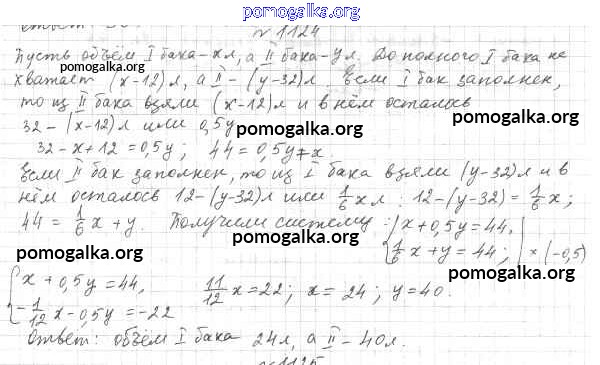 pomogalka.org
№1124
Пусть объём I бака - x л, а II бака - y л. До полного I бака не
pomogalka.org
хватает (x-12) л, а II - (y-32) л. Если I бак заполнен,
то из II бака взяли (x-12) л и в нём осталось
32-(x-12) л или 0,5y
pomogalka.org
32-x+12=0,5y; 44=0,5y+x.
Если II бак заполнен, то из I бака взяли (y-32) л и в
нём осталось 12-(y-32) л или 1/6 x л. 12-(y-32)=1/6 x;
44=1/6 x+y. Получили систему: { x+0,5y=44,
pomogalka.org pomogalka.org
1/6 x+y=44; | ×(-0,5)
pomogalka.org
{ x+0,5y=44, 11/12 x=22; x=24; y=40.
-1/12 x-0,5y=-22
pomogalka.org
Ответ: объём I бака 24 л, а II - 40 л.
pomogalka.org
№1125